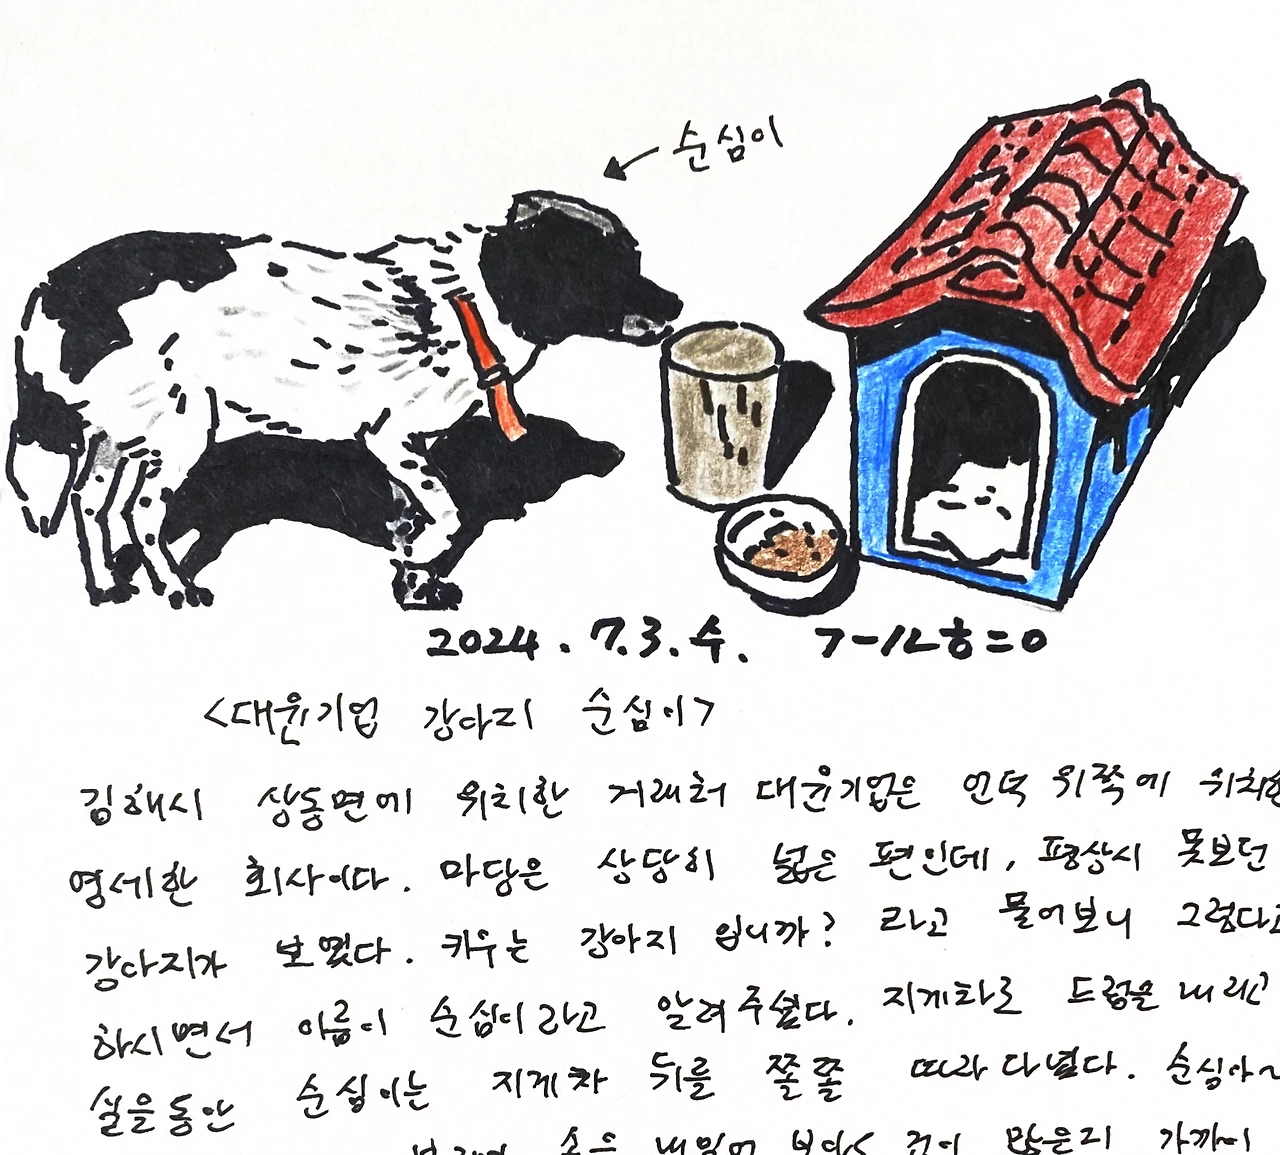 순심이
2024.7.3.수.
<대윤기업 강아지 순심이>
김해시 상동면에 위치한 거래처 대윤기업은 언덕 위쪽에 위치한
영세한 회사이다. 마당은 상당히 넓은 편인데, 평상시 못보던
강아지가 보였다. 키우는 강아지 입니까? 라고 물어보니 그렇다고
하시면서 이름이 순심이라고 알려주셨다. 지게차로 드럼을 내리고
실을동안 순심이는 지게차 뒤를 쫄쫄 따라다녔다. 순심아~
손을 내밀어 겁이 많은지 가까이